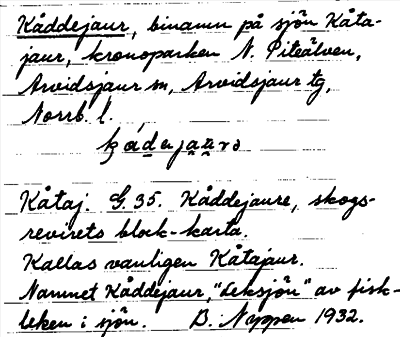 Kåddejaur, binamn på sjön Kåta-
jaur, kronoparken N. Piteälven,
Arvidsjaur sn, Arvidsjaur tg,
Norrb. l.
Kåtaj. G. 35. Kåddejaure, skogs-
revirets block-karta.
Kallas vanligen Kåtajaur.
Namnet Kåddejaur, "Leksjön" av fisk-
leken i sjön. B. Nyppen 1932.